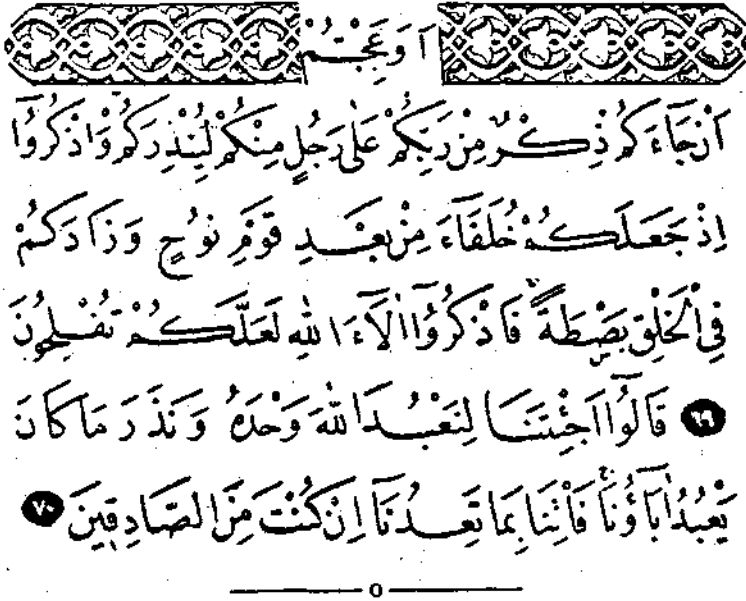 اَوَعَجِبْتُمْ
اَنْ جَآءَكُمْ ذِكْرٌ مِنْ رَبِّكُمْ عَلٰى رَجُلٍ مِنْكُمْ لِيُنْذِرَكُمْ وَاذْكُرُٓوا
اِذْ جَعَلَكُمْ خُلَفَٓاءَ مِنْ بَعْدِ قَوْمِ نُوحٍ وَزَادَكُمْ
فِي الْخَلْقِ بَصْۜطَةً فَاذْكُرُٓوا اٰلَٓاءَ اللّٰهِ لَعَلَّكُمْ تُفْلِحُونَ
٦٩ قَالُٓوا اَجِئْتَنَا لِنَعْبُدَ اللّٰهَ وَحْدَهُ وَنَذَرَ مَا كَانَ
يَعْبُدُ اٰبَٓاؤُ۬نَا فَأْتِنَا بِمَا تَعِدُنَٓا اِنْ كُنْتَ مِنَ الصَّادِقِينَ ٧٠
٥